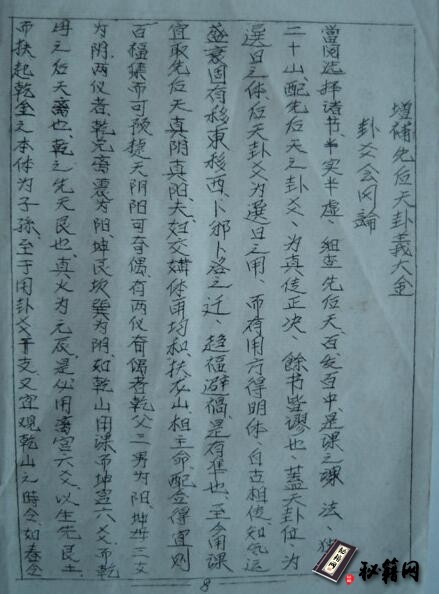 增補先后天卦義大全
卦爻会冈論
當闵选择诸书半实半虚、细查先后天、百发百中、是课之課法、
二十山、配先后天之卦爻、为真传正决、餘书皆謬也、蓋天卦位为
選日之体、后天卦爻为選日之用、而存用方得明体、自古相传、知氣运
盛衰、固有移東移西、卜邪卜洛之迁、趋福避禍、是有焦也、至今用課
宜取先后天真阴真阳、夫妇交媾体用均和、扶龙山、相主命、配合得宜、则
百福集而可预捷、天阴阳可奇偶、有两仪奇偶者乾父三男为阳、坤母三女
为阴、两仪者、乾兑离震为阳、坤艮坎巽为阴、如乾山用课而坤宫六爻、而乾
丹之后天离也、乾之先天艮也、真火为元辰、是必用离宫六爻、以生先艮土、
而扶起乾金之本体为子孫、至于用卦爻干支、又宜观乾山之時令、如春令
8
秘籍网